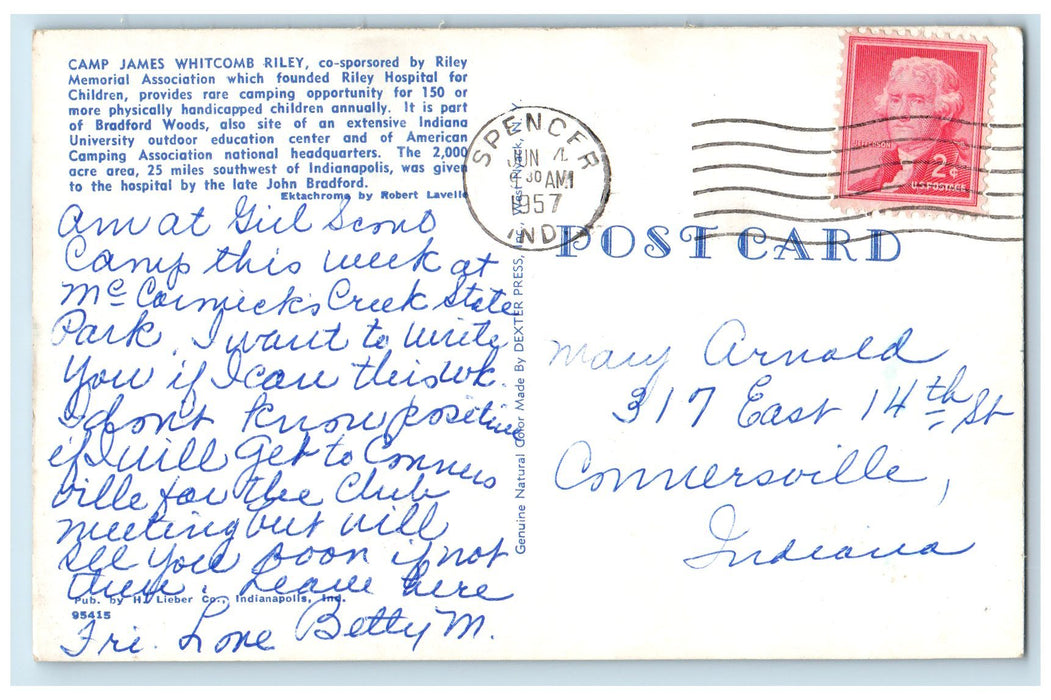 CAMP JAMES WHITCOMB RILEY, co-sporsored by Riley
Memorial Association which founded Riley Hospital for
Children, provides rare camping opportunity for 150 or
more physically handicapped children annually. It is part
of Bradford Woods, also site of an extensive Indiana
University outdoor education center and of American
Camping Association national headquarters. The 2,000
acre area, 25 miles southwest of Indianapolis, was given
to the hospital by the late John Bradford.
Ektachrome by Robert Lavelle
Am at Girl Scout
Camp this week at
McCormick's Creek State
Park. I want to write
You if I can this wk.
I don't know positive
if I will get to Conners
ville for the Club
meeting but will
see you soon if not
then. Leave here
Fri. Love Betty M.
Pub. by H. Lieber Co., Indianapolis, Ind.
95415
Genuine Natural Color Made By DEXTER PRESS, Inc., West Nyack, N.Y.
SPENCER
JUN 4
30 AM
1957
IND.
JEFFERSON
2¢
U.S. POSTAGE
POST CARD
Mary Arnold
317 East 14th St
Connersville,
Indiana